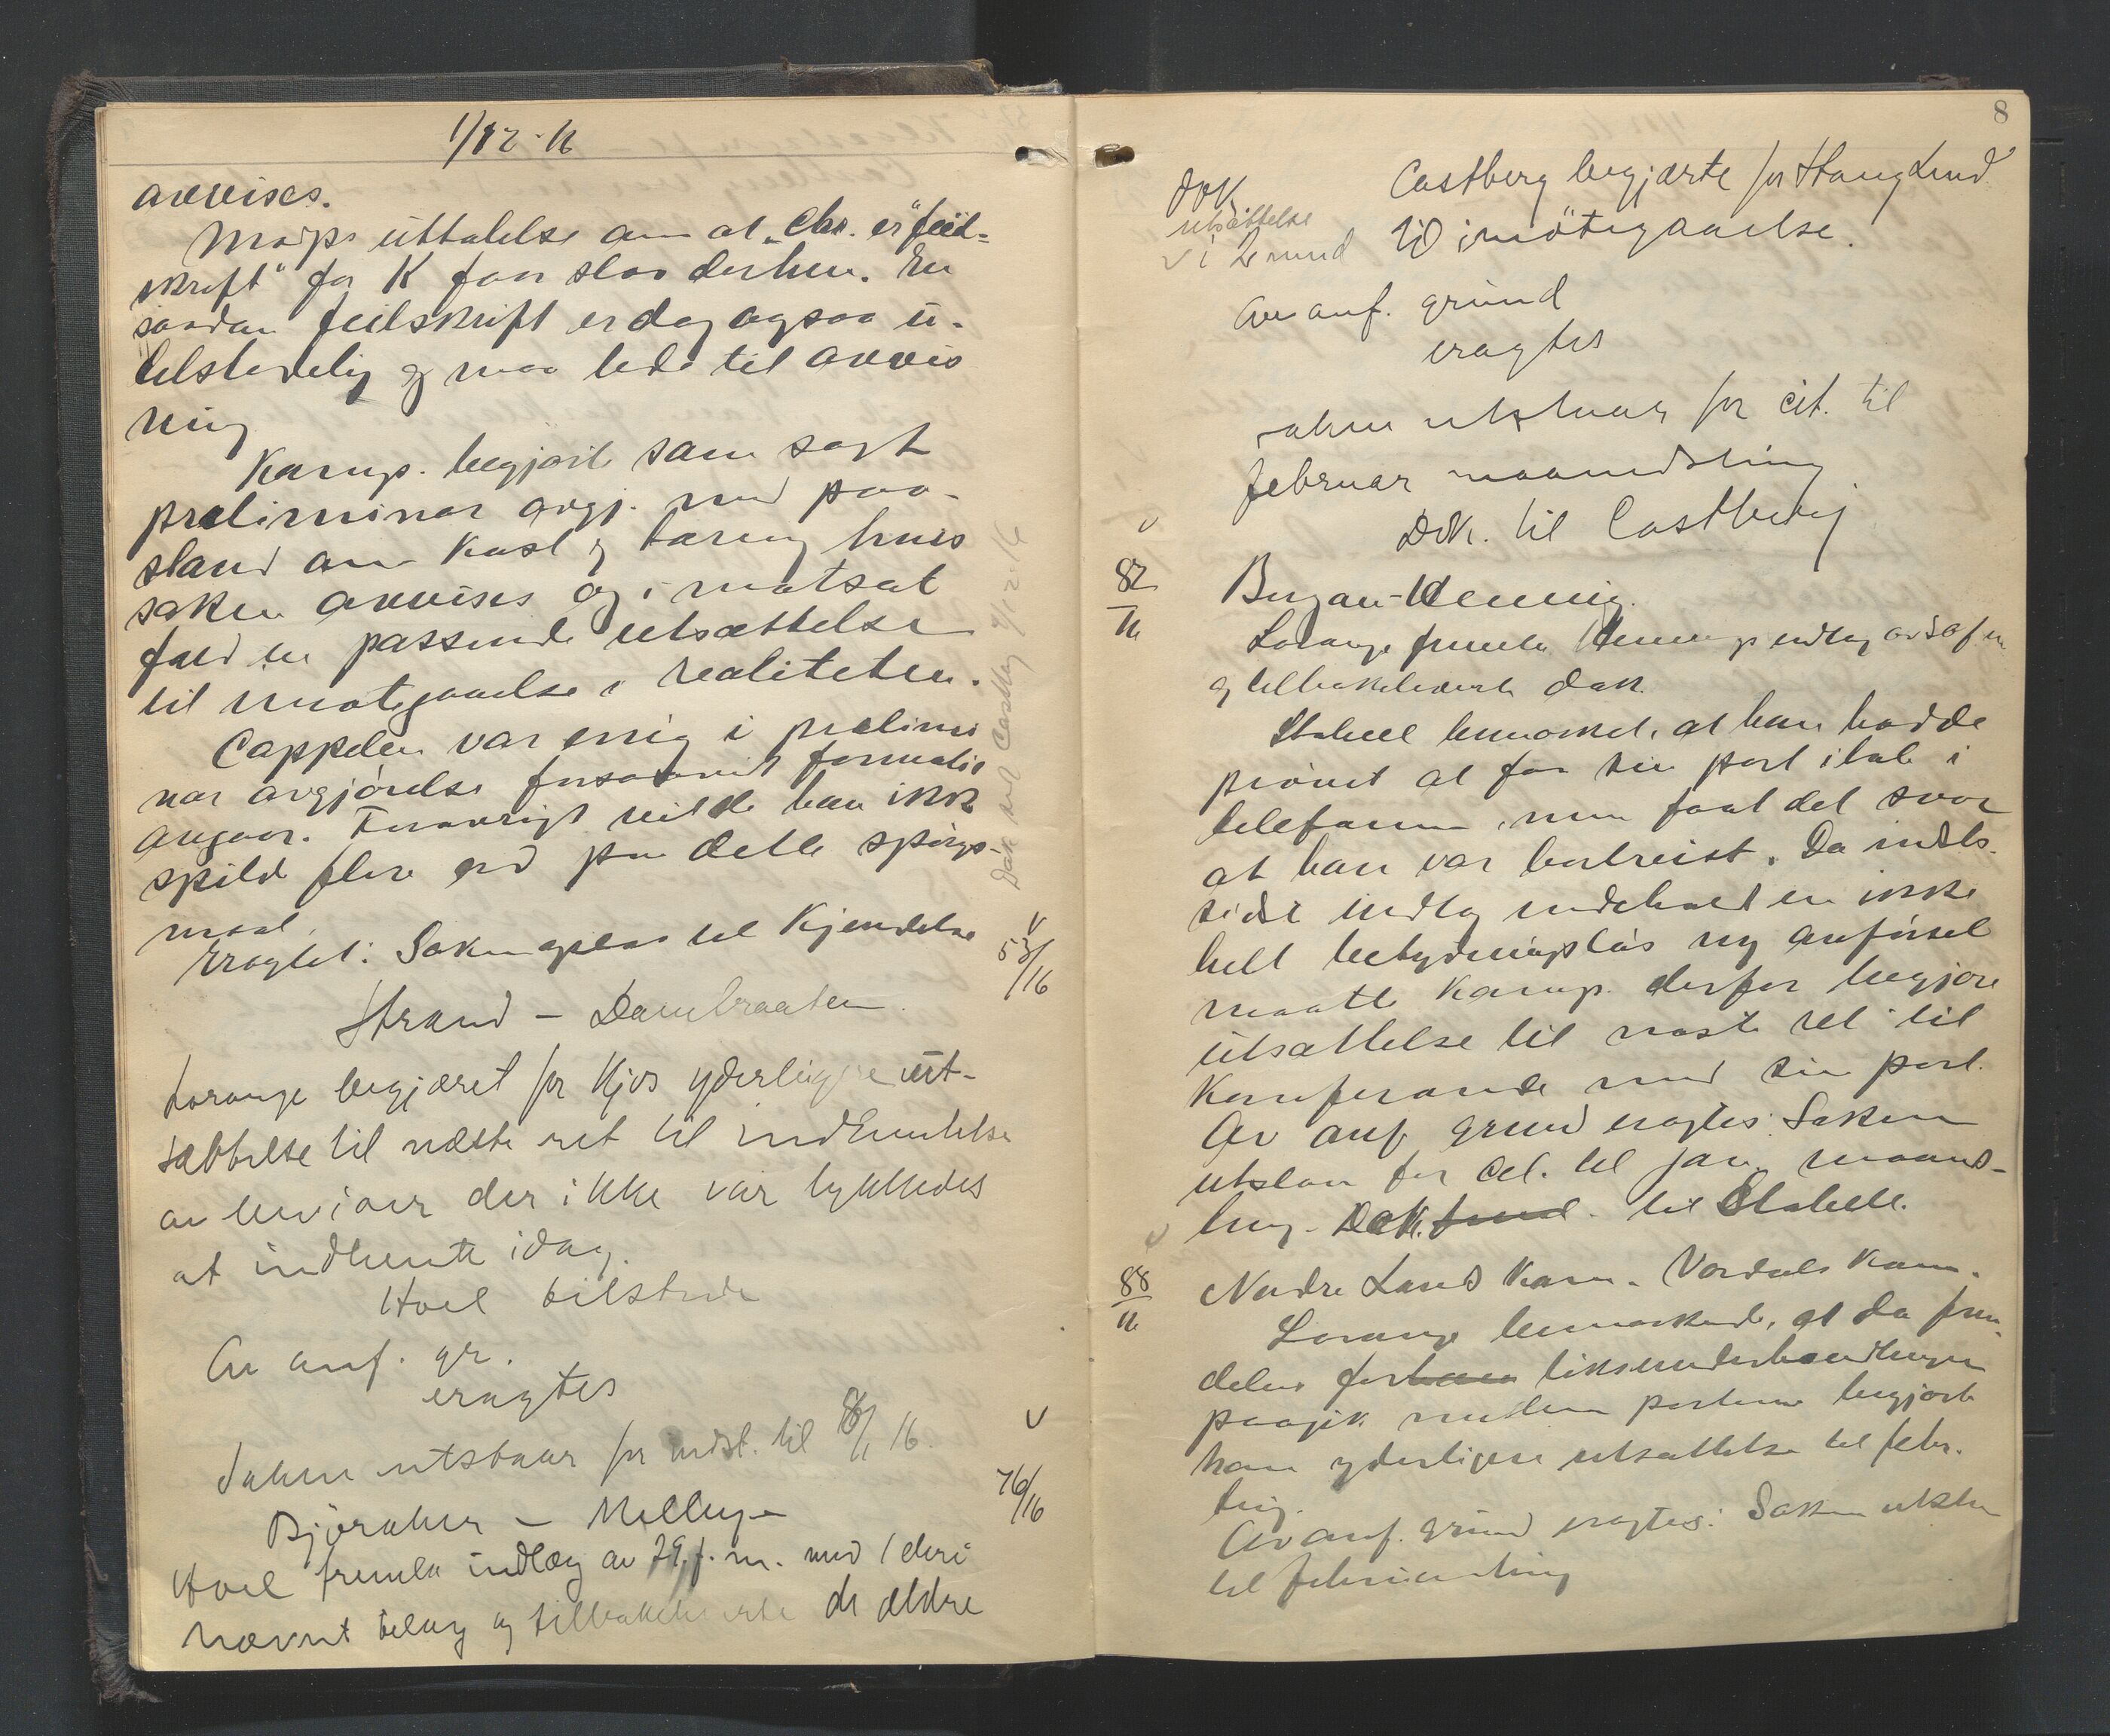 1/12-16
avvises.
Morps uttalelse om at "Chr. er "feil-
skrift" for K faar staa derhen. En
saadan feilskrift er dog ogsaa u-
tilstedelig og maa lede til avvis
ning
Komp. begjærte som sagt
præliminær avgj. med paa-
stand om kost og tæring hvis
saken avvises og i motsat
fald en passende utsættelse
til imøtegaaelse i realiteten.
Cappelen var enig i prælimi
nær avgjørelse forsaavidt formalie
angaar. Forøvrigt vilde han ikke
spilde flere ord paa dette spørgs-
maal.
Eragtet: Saken optas til Kjendelse
Dok til Castberg 7/12-16
V
53/16
Strand - Dambraaten
Lorange begjæret for Kjos yderligere ut-
sættelse til næste ret til indhentelse
av beviser der ikke var lykkedes
at indhente idag.
Hoel tilstede
Av anf. gr.
eragtes
Saken utstaar for indst. til 8/1 16.
V
76/16
Bjøraker - Melby
Hoel fremla indlæg av 29. f. m. med 1 deri
nævnt bilag og tilbakeleverte de ældre
8
Dok
utsættelse
v i 2 mnd
Castberg begjærte for Haug Lund
til imøtegaaelse.
Av anf. grund
eragtes
saken utstaar for cit. til
februar maanedsting
Dok. til Castberg
V
82/16
Bergan-Hennig.
Lorange fremla Hennigs indlæg av
og tilbakeleverte dok.
Stabell bemerket, at han hadde
prøvet at faa sin part i tale i
telefonen, men faat det svar
at han var bortreist. Da indst.
sidste indlæg indeholdt en ikke
helt betydningsløs ny anførsel
maatte komp. derfor begjære
utsættelse til næste ret til
Konferanse med sin part.
Av anf. grund eragtes: Saken
utstaar for cit. til jan. maaneds-
ting. Dok. til Stabell.
V
88/16
Nordre Land Kom. - Vardals Kom.
Lorange bemerkede, at da frem
deles forliksunderhandlinger
paagik mellem parterne begjærte
han yderligere utsættelse til febr.
ting.
Av anf. grund eragtes: Saken utstaar
til februarting